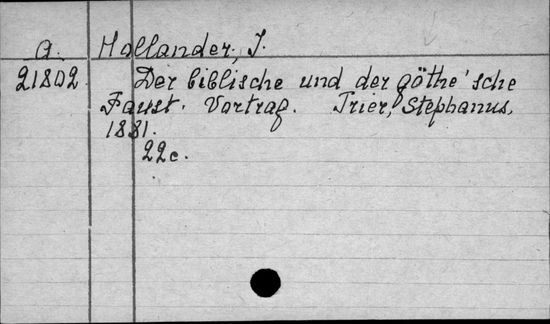 a. Hollander, J.
21802 Der biblische und der göthe'sche
Faust. Vortrag. Trier, Stephanus,
1881.
22c.